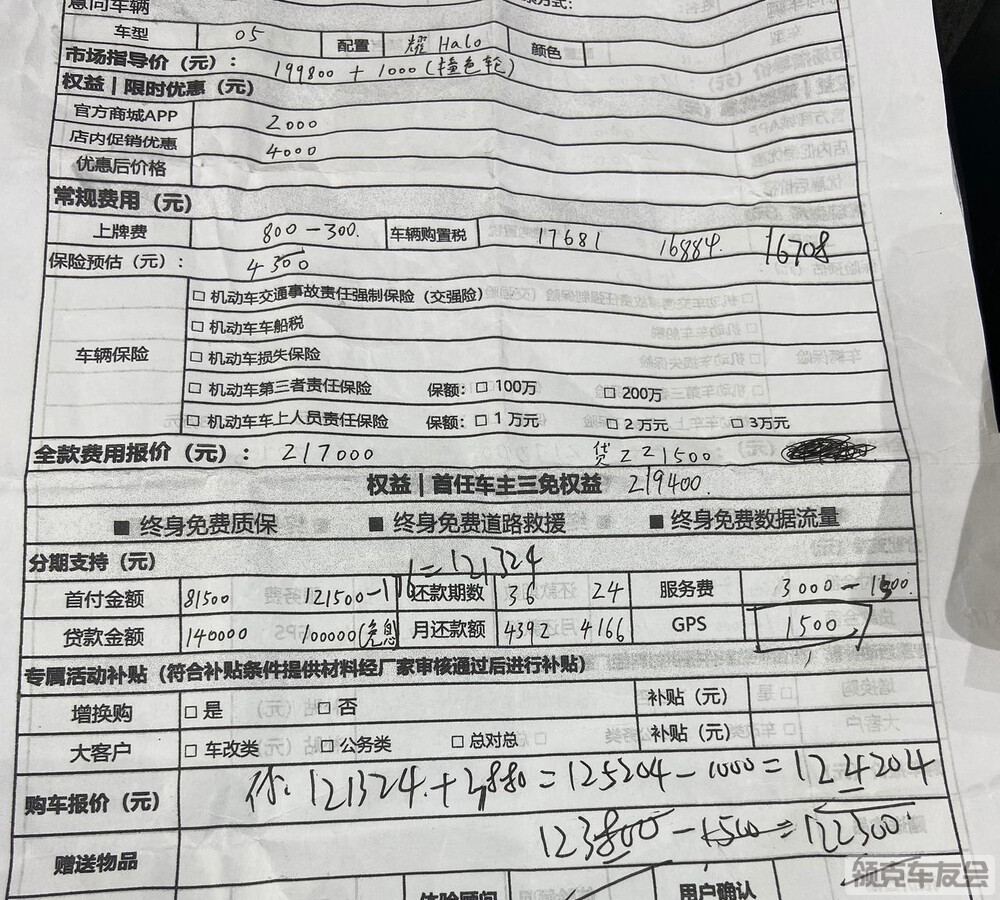 意向车辆
车型 05 配置 耀 Halo 颜色
市场指导价（元）： 199800 + 1000（撞色轮）
权益｜限时优惠（元）
官方商城APP 2000
店内促销优惠 4000
优惠后价格
常规费用（元）
上牌费 800-300. 车辆购置税 17681 16884. 16708
保险预估（元）： 4300
□ 机动车交通事故责任强制保险（交强险）
□ 机动车车船税
车辆保险 □ 机动车损失保险
□ 机动车第三者责任保险 保额：□ 100万 □ 200万
□ 机动车车上人员责任保险 保额：□ 1万元 □ 2万元 □ 3万元
全款费用报价（元）： 217000 贷 221500
权益｜首任车主三免权益 219400.
■ 终身免费质保 ■ 终身免费道路救援 ■ 终身免费数据流量
分期支持（元） =121324
首付金额 81500 121500-176 还款期数 36 24 服务费 3000-1500.
贷款金额 140000 100000(免息 月还款额 4392 4166 GPS 1500
专属活动补贴（符合补贴条件提供材料经厂家审核通过后进行补贴）
增换购 □ 是 □ 否 补贴（元）
大客户 □ 车改类 □ 公务类 □ 总对总 补贴（元）
购车报价（元） 121324.+3,880=125204-1000=124204
123800-1500=122300
赠送物品
体验顾问 用户确认
领克车友会